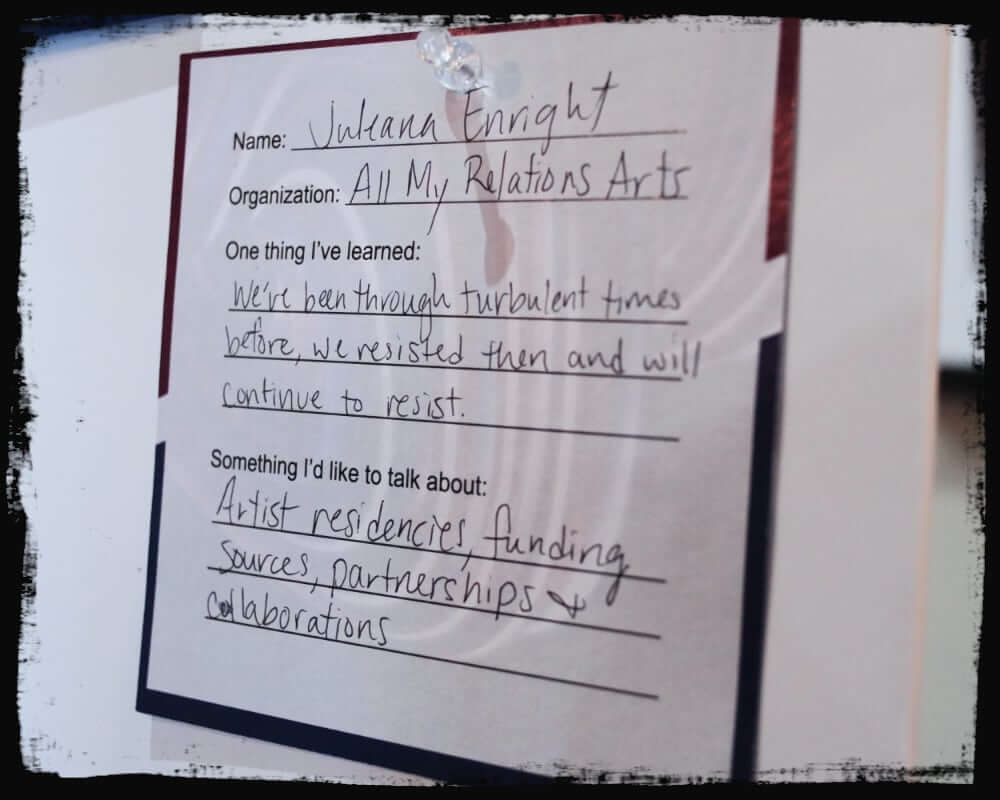 Name: Juleana Enright
Organization: All My Relations Arts
One thing I've learned:
We've been through turbulent times
before, we resisted then and will
continue to resist.
Something I'd like to talk about:
Artist residencies, funding
sources, partnerships &
collaborations